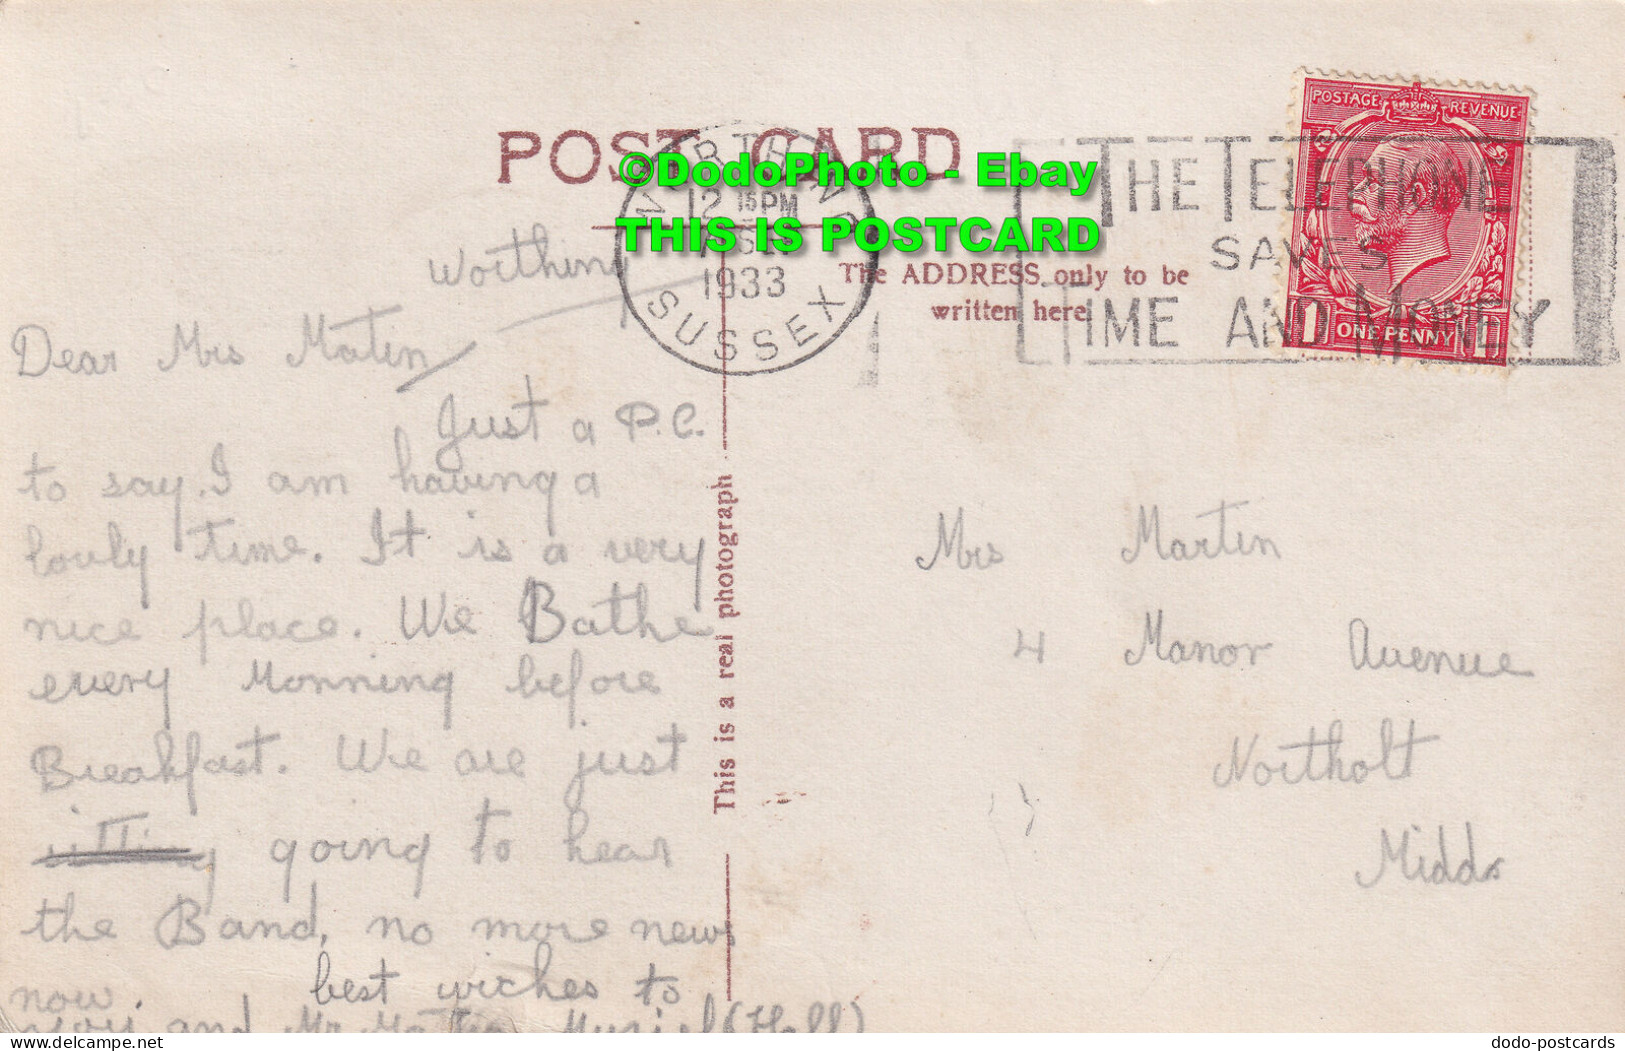 POST CARD
©DodoPhoto - Ebay
THIS IS POSTCARD
WORTHING
12 15 PM
1933
SUSSEX
THE TELEPHONE
SAVES
TIME AND MONEY
POSTAGE REVENUE
1 ONE PENNY 1
The ADDRESS only to be
written here
This is a real photograph
Worthing
Dear Mrs Maten
Just a P.C.
to say. I am having a
lovly time. It is a very
nice place. We Bathe
every Monning before
Breakfast. We are just
going to hear
the Band, no more news
now. best wiches to
you and Mr Muriel (Hall)
Mrs Martin
4 Manor Avenue
Northolt
Midds
www.delcampe.net
dodo-postcards